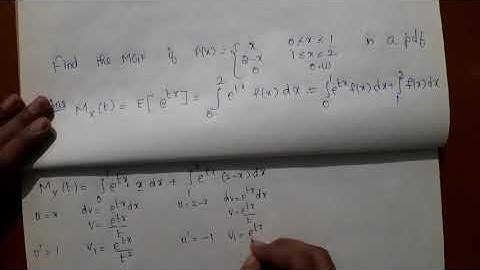 Find the MGF if f(x) = { x 0≤x≤1
2-x 1≤x≤2
0 o.w is a pdf
Ans M_x(t) = E[e^{tx}] = ∫_0^2 e^{tx} f(x) dx = ∫_0^1 e^{tx} f(x) dx + ∫_1^2 f(x) dx
M_x(t) = ∫_0^1 e^{tx} x dx + ∫_1^2 e^{tx} (2-x) dx
u = x dv = e^{tx} dx u = 2-x dv = e^{tx} dx
v = e^{tx}/t v = e^{tx}/t
u' = 1 v_1 = e^{tx}/t^2 u' = -1 v_1 = e^{tx}